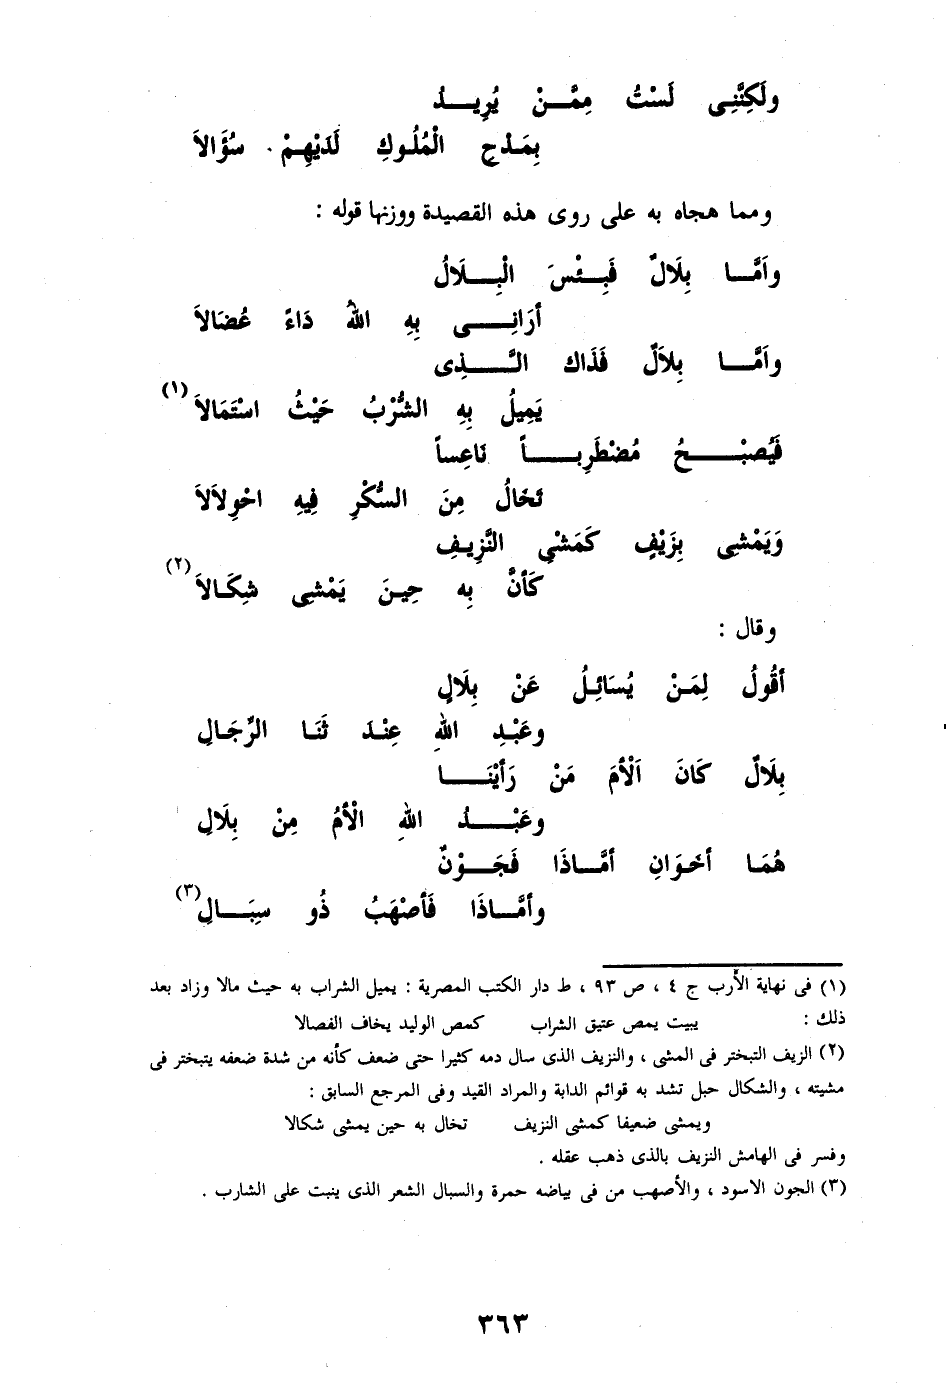 ولَكِنَّنِى لَسْتُ مِمَّنْ يُرِيدُ
بِمَدْحِ الْمُلُوكِ لَدَيْهِمْ سُؤَالاَ
ومما هجاه به على روى هذه القصيدة ووزنها قوله :
واَمَّا بِلَالٌ فَبِئْسَ الْبِلَالُ
أرَانِى بِهِ اللهُ دَاءً عُضَالاَ
واَمَّا بِلاَلٌ فَذَاك الَّذِى
يَمِيلُ بِهِ الشُّرْبُ حَيْثُ اسْتَمَالاَ (١)
فَيُصبْحُ مُضْطَرِباً نَاعِساً
تَخالُ مِنَ السُّكْرِ فِيهِ احْوِلاَلاَ
وَيَمْشِى بِزَيْفٍ كَمَشْيِ النَّزِيفِ
كَأنَّ بِه حِينَ يَمْشِى شِكَالاَ (٢)
وقال :
أقُولُ لِمَنْ يُسَائِلُ عَنْ بِلَالٍ
وعَبْدِ اللهِ عِنْدَ ثَنَا الرِّجَالِ
بِلَالٌ كَانَ اَلْأمَ مَنْ رَأيْنَا
وعَبْدُ اللهِ الْأمُ مِنْ بِلَالِ
هُمَا أخوَانِ أمَّاذَا فَجَوْنٌ
وأمَّاذَا فَأصْهَبُ ذُو سِبَالِ (٣)
(١) فى نهاية الأرب ج ٤ ، ص ٩٣ ، ط دار الكتب المصرية : يميل الشراب به حيث مالا وزاد بعد
ذلك : يبيت يمص عتيق الشراب كمص الوليد يخاف الفصالا
(٢) الزيف التبختر فى المشى ، والنزيف الذى سال دمه كثيرا حتى ضعف كأنه من شدة ضعفه يتبختر فى
مشيته ، والشكال حبل تشد به قوائم الدابة والمراد القيد وفى المرجع السابق :
ويمشى ضعيفا كمشى النزيف تخال به حين يمشى شكالا
وفسر فى الهامش النزيف بالذى ذهب عقله .
(٣) الجون الاسود ، والأصهب من فى بياضه حمرة والسبال الشعر الذى ينبت على الشارب .
٣٦٣